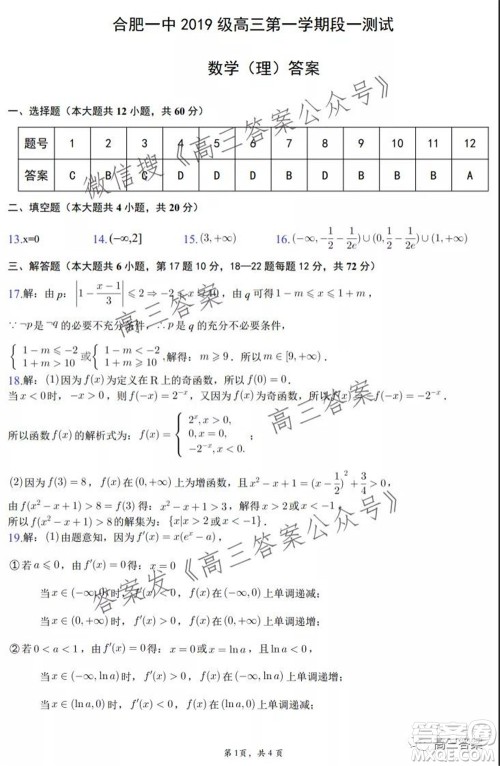 合肥一中 2019 级高三第一学期段一测试
数学（理）答案
一、选择题（本大题共 12 小题，共 60 分）
题号 1 2 3 4 5 6 7 8 9 10 11 12
答案 C B C D D D B D B B A
二、填空题（本大题共 4 小题，共 20 分）
13.x=0 14.(−∞,2] 15.(3,+∞) 16.(−∞,−1/2−1/2e)∪(0,1/2−1/2e)∪(1,+∞)
三、解答题（本大题共 6 小题，第 17 题 10 分，18—22 题每题 12 分，共 72 分）
17.解：由 p：|1−(x−1)/3|⩽2⇒−2⩽x⩽10，由 q 可得 1−m⩽x⩽1+m，
∵¬p是¬q的必要不充分条件，∴p是q的充分不必要条件，
{1−m⩽−2 1+m>10 或{1−m<−2 1+m⩾10 .解得：m⩾9．所以 m∈[9,+∞)．
18.解：(1)因为 f(x) 为定义在 R 上的奇函数，所以 f(0)=0．
当 x<0时，−x>0，则 f(−x)=2^−x，又因为 f(x) 为奇函数，所以 f(x)=−f(−x)=−2^−x．
所以函数 f(x) 的解析式为：f(x)={2^x,x>0, 0,x=0, −2^−x,x<0.；
(2)因为 f(3)=8，f(x) 在 (0,+∞) 上为增函数，且 x²−x+1=(x−1/2)²+3/4>0，
由 f(x²−x+1)>8=f(3) 得：x²−x+1>3，解得 x>2 或 x<−1，
所以 f(x²−x+1)>8 的解集为：{x|x>2 或 x<−1}．
19.解：(1)由题意知，因为 f′(x)=x(e^x−a)，
①若 a⩽0，由 f′(x)=0 得：x=0，
当 x∈(−∞,0) 时，f′(x)<0，f(x) 在 (−∞,0) 上单调递减；
当 x∈(0,+∞) 时，f′(x)>0，f(x) 在 (0,+∞) 上单调递增；
②若 0<a<1，由 f′(x)=0 得：x=0 或 x=lna，
当 x∈(−∞,lna) 时，f′(x)>0，f(x) 在 (−∞,lna) 上单调递增；
当 x∈(lna,0) 时，f′(x)<0，f(x) 在 (lna,0) 上单调递减；
第 1 页，共 4 页
微信搜《高三答案公众号》
高三答案
高三答案
答案发《高三答案公众号》
高三答案
答案圈